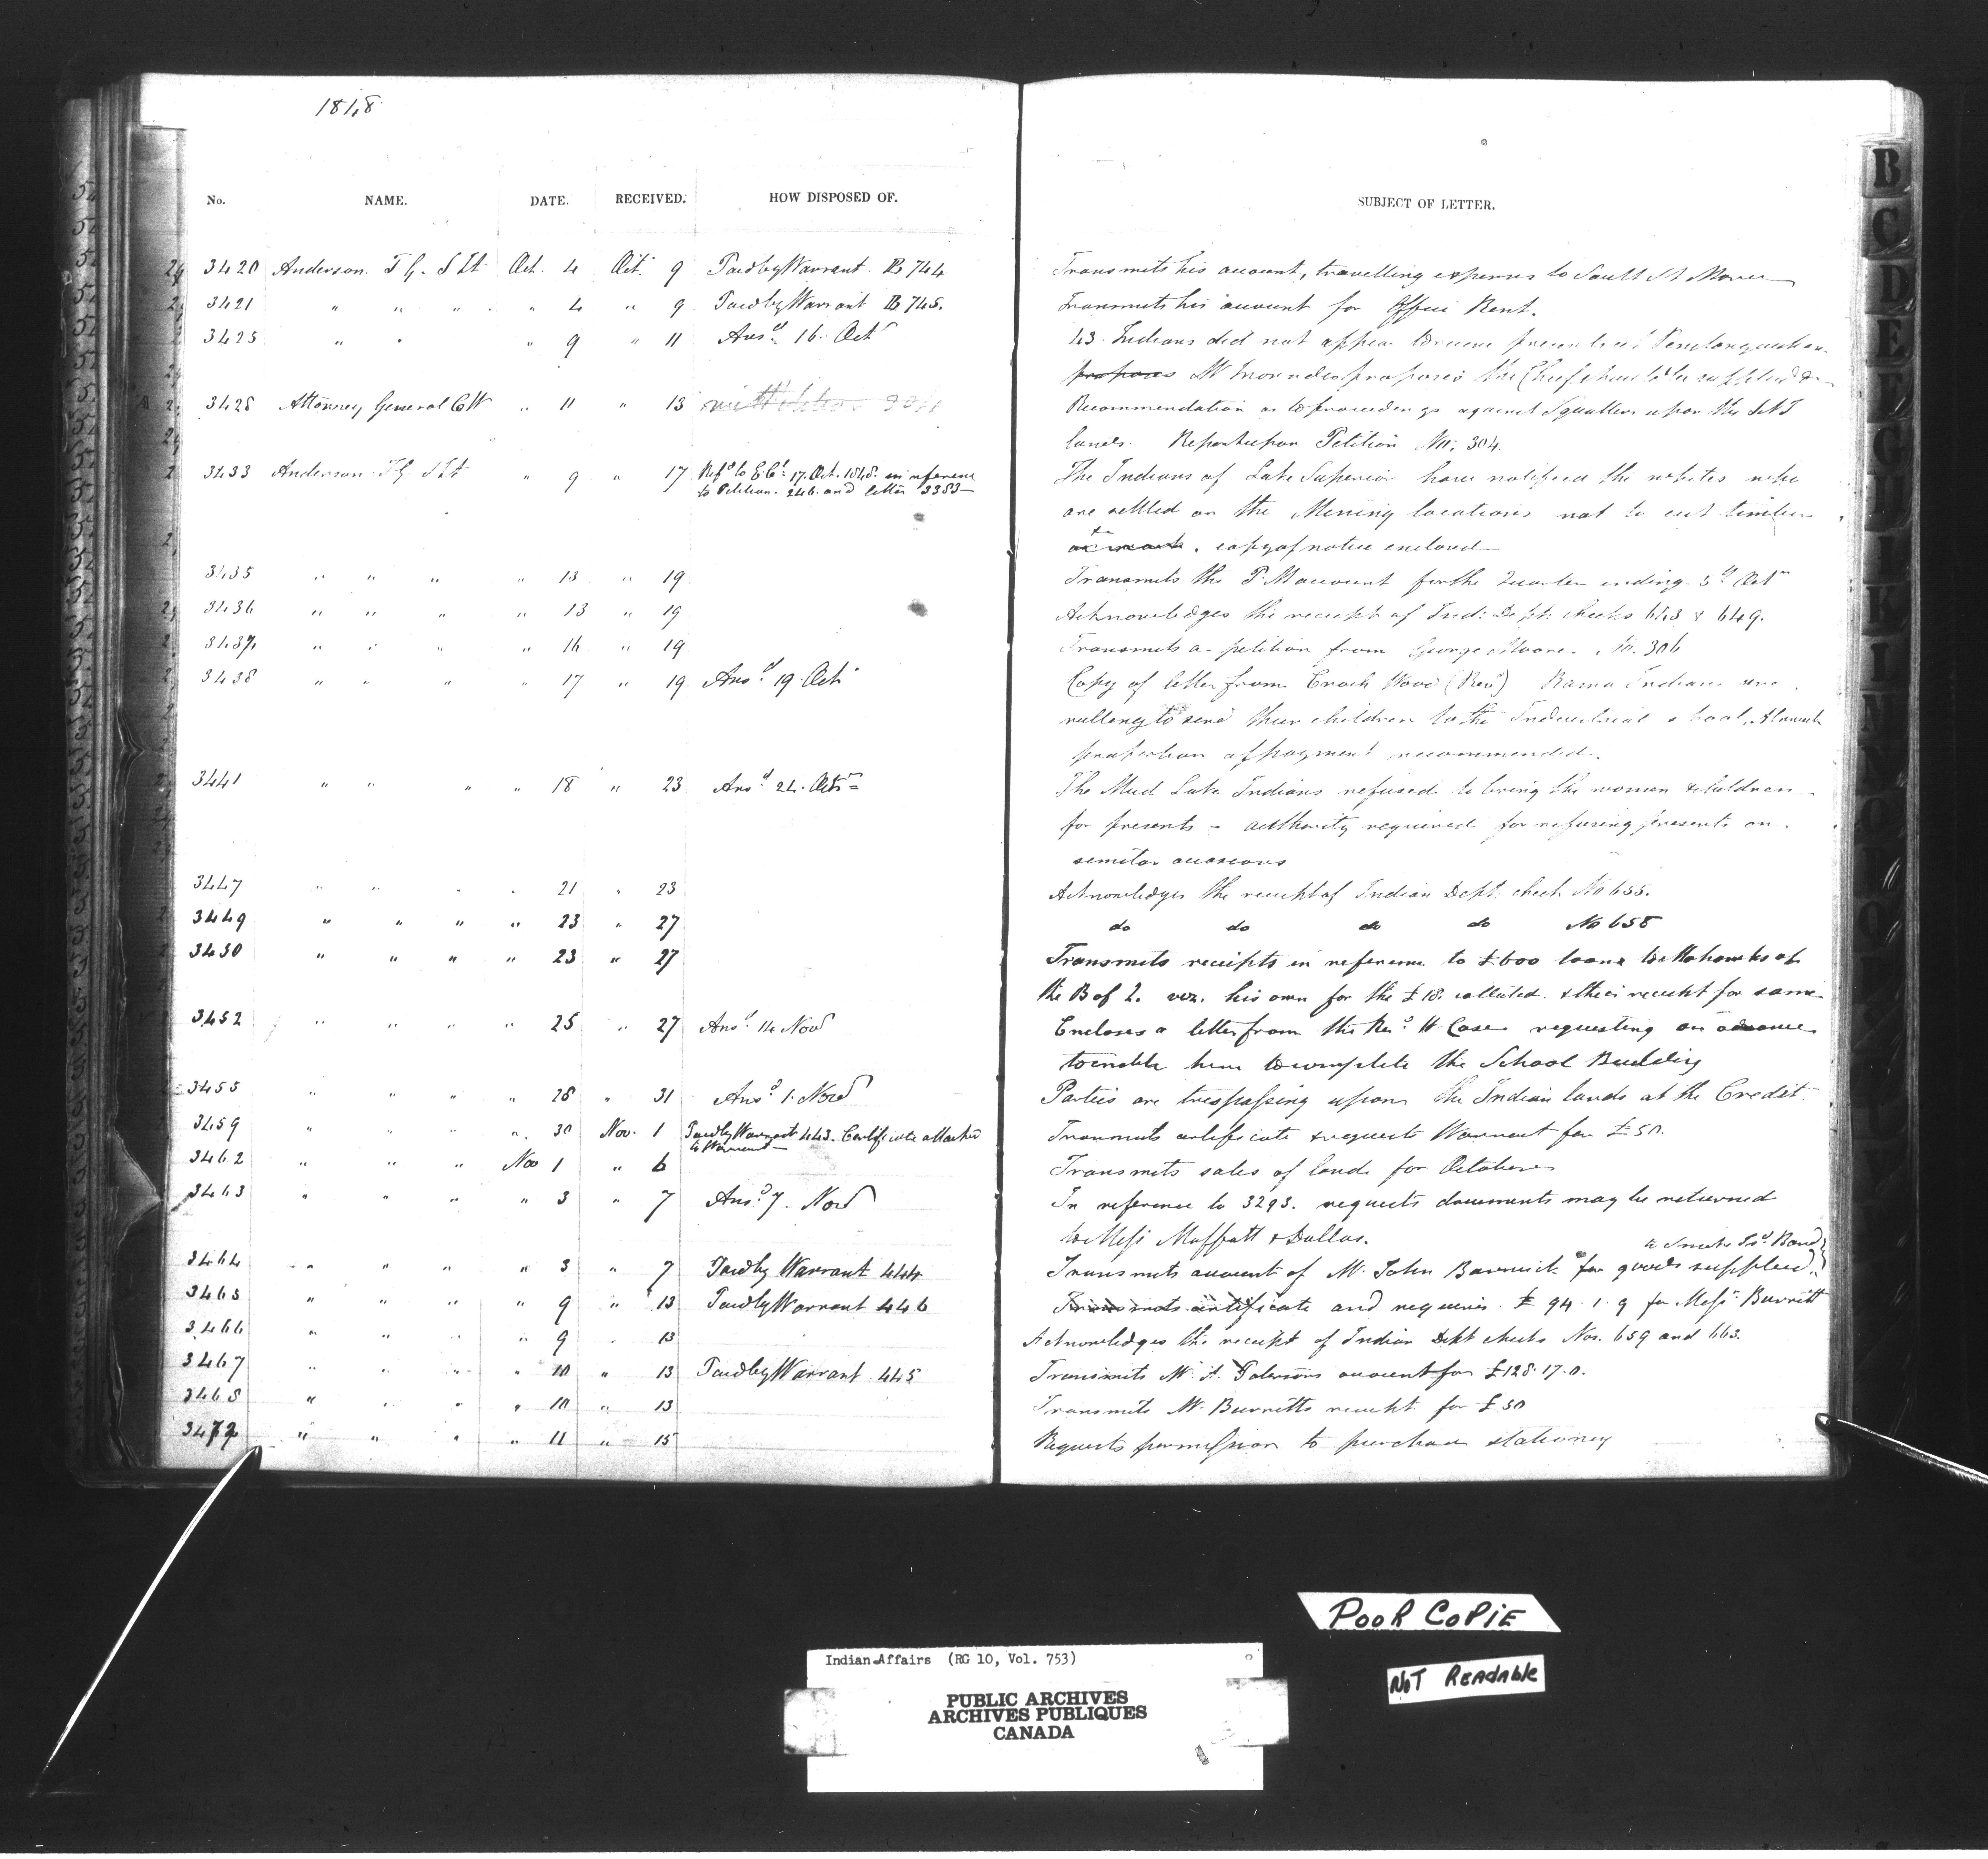 1848
No. NAME. DATE. RECEIVED. HOW DISPOSED OF. SUBJECT OF LETTER.
3420 Anderson T G. S It Oct. 4 Oct. 9 Paid by Warrant. B 744 Transmits his account, travelling expenses to Sault St Marie
3421 " " " " 4 " 9 Paid by Warrant B 745. Transmits his account for Office Rent.
3425 " " " 9 " 11 Ansd 16. Octr 43. Indians did not appear
proposes Mr proposes the Chief should be supplied &
3428 Attorney General CW " 11 " 13 Recommendation as to proceedings against Squatters upon the
lands. Report upon Petition No. 304.
3433 Anderson T G S It " 9 " 17 Refd to E. Cl. 17. Oct. 1848. in reference The Indians of Lake Superior have notified the whites who
to Petition. 246. and letter 3383— are settled on the Mining locations not to cut timber
&c . copy of notice enclosed—
3435 " " " " 13 " 19 Transmits the account for the Quarter ending
3436 " " " " 13 " 19 Acknowledges the receipt of Ind: Dept: checks 648 & 649.
3437 " " " " 16 " 19 Transmits a petition from George Moore. No. 306
3438 " " " " 17 " 19 Ansd 19. Oct Copy of letter from Enoch Wood (Revd) Rama Indians
willing to send their children to the Industrial school,
proportion of payment recommended.
3441 " " " " 18 " 23 Ansd 24. Octr The Mud Lake Indians refused to bring the women & children
for presents – authority required for refusing presents on
similar occasions
3447 " " " " 21 " 23 Acknowledges the receipt of Indian Dept. check No 655.
3449 " " " " 23 " 27 do do do do No 658
3450 " " " " 23 " 27 Transmits receipts in reference to £600 loan to Mohawks of
the B of Q. viz. his own for the £18. collected. & their receipt for same
3452 " " " " 25 " 27 Ansd 14 Novr Encloses a letter from the Revd. W Case requesting an advance
to enable him to complete the School Building
3455 " " " " 28 " 31 Ansd 1. Novr Parties are trespassing upon the Indian lands at the Credit.
3459 " " " " 30 Nov. 1 Paid by Warrant 443. Certificate attached Transmits certificate & requests Warrant for £50.
to Warrant—
3462 " " " Nov 1 " 6 Transmits sales of land for October
3463 " " " " 3 " 7 Ansd 7. Novr In reference to 3293. requests documents may be returned
to Messrs Moffatt & Dallas.
to Snake Isd. Band
3464 " " " " 3 " 7 Paid by Warrant 444 Transmits account of Mr. John for goods supplied
3465 " " " " 9 " 13 Paid by Warrant 446 Transmits certificate and requires. £ 94. 1. 9 for Messrs Burritt
3466 " " " " 9 " 13 Acknowledges the receipt of Indian Dept checks Nos. 659 and 663.
3467 " " " " 10 " 13 Paid by Warrant. 445 Transmits Mr. A. Patersons account for £128. 17. 0.
3468 " " " " 10 " 13 Transmits Mr. Burritts receipt for £50
3472 " " " " 11 " 15 Requests permission to purchase stationery
B
C
D
E
G
U
I
K
POOR COPIE
NOT READABLE
Indian Affairs (RG 10, Vol. 753)
PUBLIC ARCHIVES
ARCHIVES PUBLIQUES
CANADA